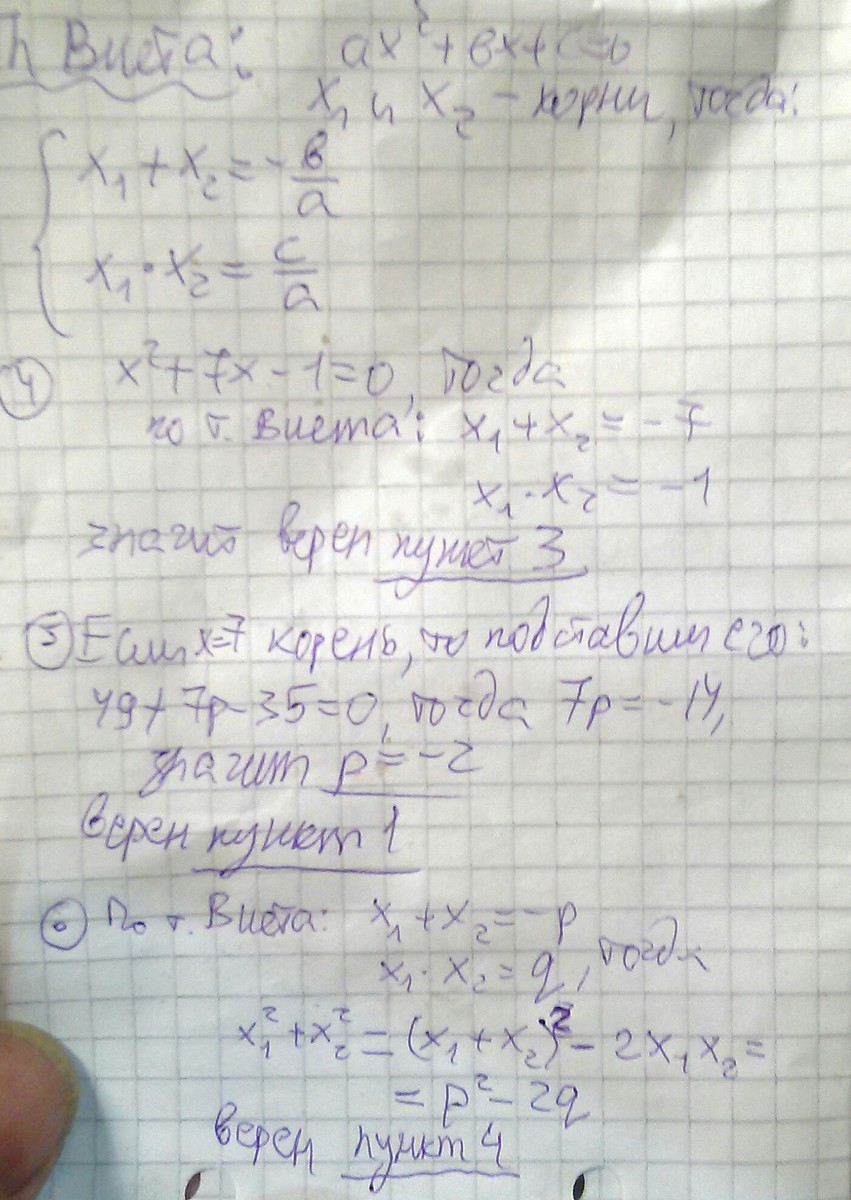 Th Виета: ax² + вx + c = 0
x₁ и x₂ – корни, тогда:
x₁ + x₂ = - в/a
x₁ · x₂ = c/a
④ x² + 7x - 1 = 0, тогда
по т. Виета: x₁ + x₂ = -7
x₁ · x₂ = -1
значит верен пункт 3
⑤ Если x=7 корень, то подставим его:
49 + 7p - 35 = 0, тогда 7p = -14,
значит p = -2
верен пункт 1
⑥ По т. Виета: x₁ + x₂ = -p
x₁ · x₂ = q, тогда
x₁² + x₂² = (x₁ + x₂)² - 2x₁x₂ =
= p² - 2q
верен пункт 4